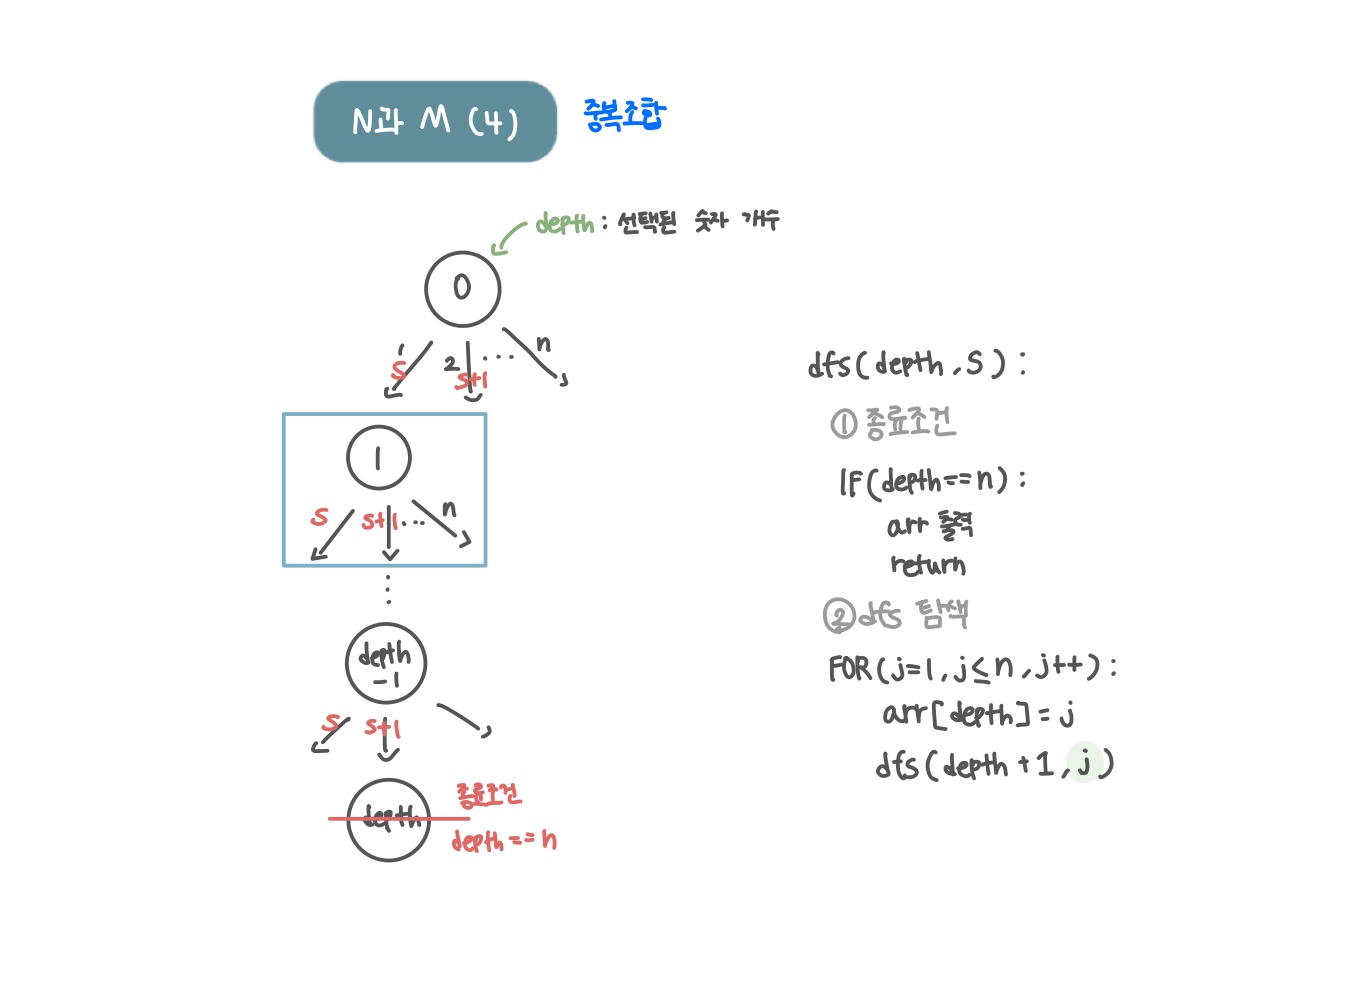 N과 M (4)
중복조합
depth : 선택된 숫자 개수
0
1 2 ... n
s s+1
1
s s+1 ... n
depth
-1
s s+1
depth
종료조건
depth == n
dfs(depth, s) :
① 종료조건
IF(depth==n) :
arr 출력
return
② dfs 탐색
FOR(j=1, j≤n, j++) :
arr[depth] = j
dfs(depth +1, j)